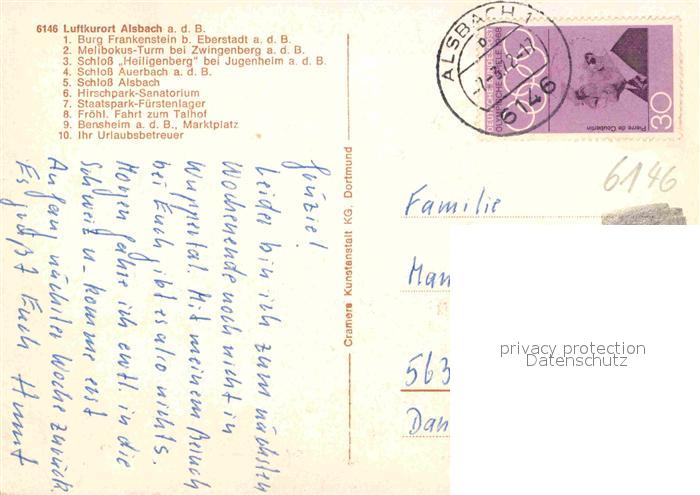 6146 Luftkurort Alsbach a. d. B.
1. Burg Frankenstein b. Eberstadt a. d. B.
2. Melibokus-Turm bei Zwingenberg a. d. B.
3. Schloß „Heiligenberg" bei Jugenheim a. d. B.
4. Schloß Auerbach a. d. B.
5. Schloß Alsbach
6. Hirschpark-Sanatorium
7. Staatspark-Fürstenlager
8. Fröhl. Fahrt zum Talhof
9. Bensheim a. d. B., Marktplatz
10. Ihr Urlaubsbetreuer
ALSBACH 1
6146
DEUTSCHE BUNDESPOST
OLYMPISCHE SPIELE 1968
Pierre de Coubertin
30
6146
Cramers Kunstanstalt KG. Dortmund
Leider bin ich zum nächsten
Wochenende noch nicht in
Wuppertal. Mit meinem Besuch
bei Euch gibt es also nichts.
Morgen fahre ich evtl. in die
Schweiz u. komme erst
Anfang nächster Woche zurück.
Es grüßt Euch
Familie
Man
563
Dan
privacy protection
Datenschutz